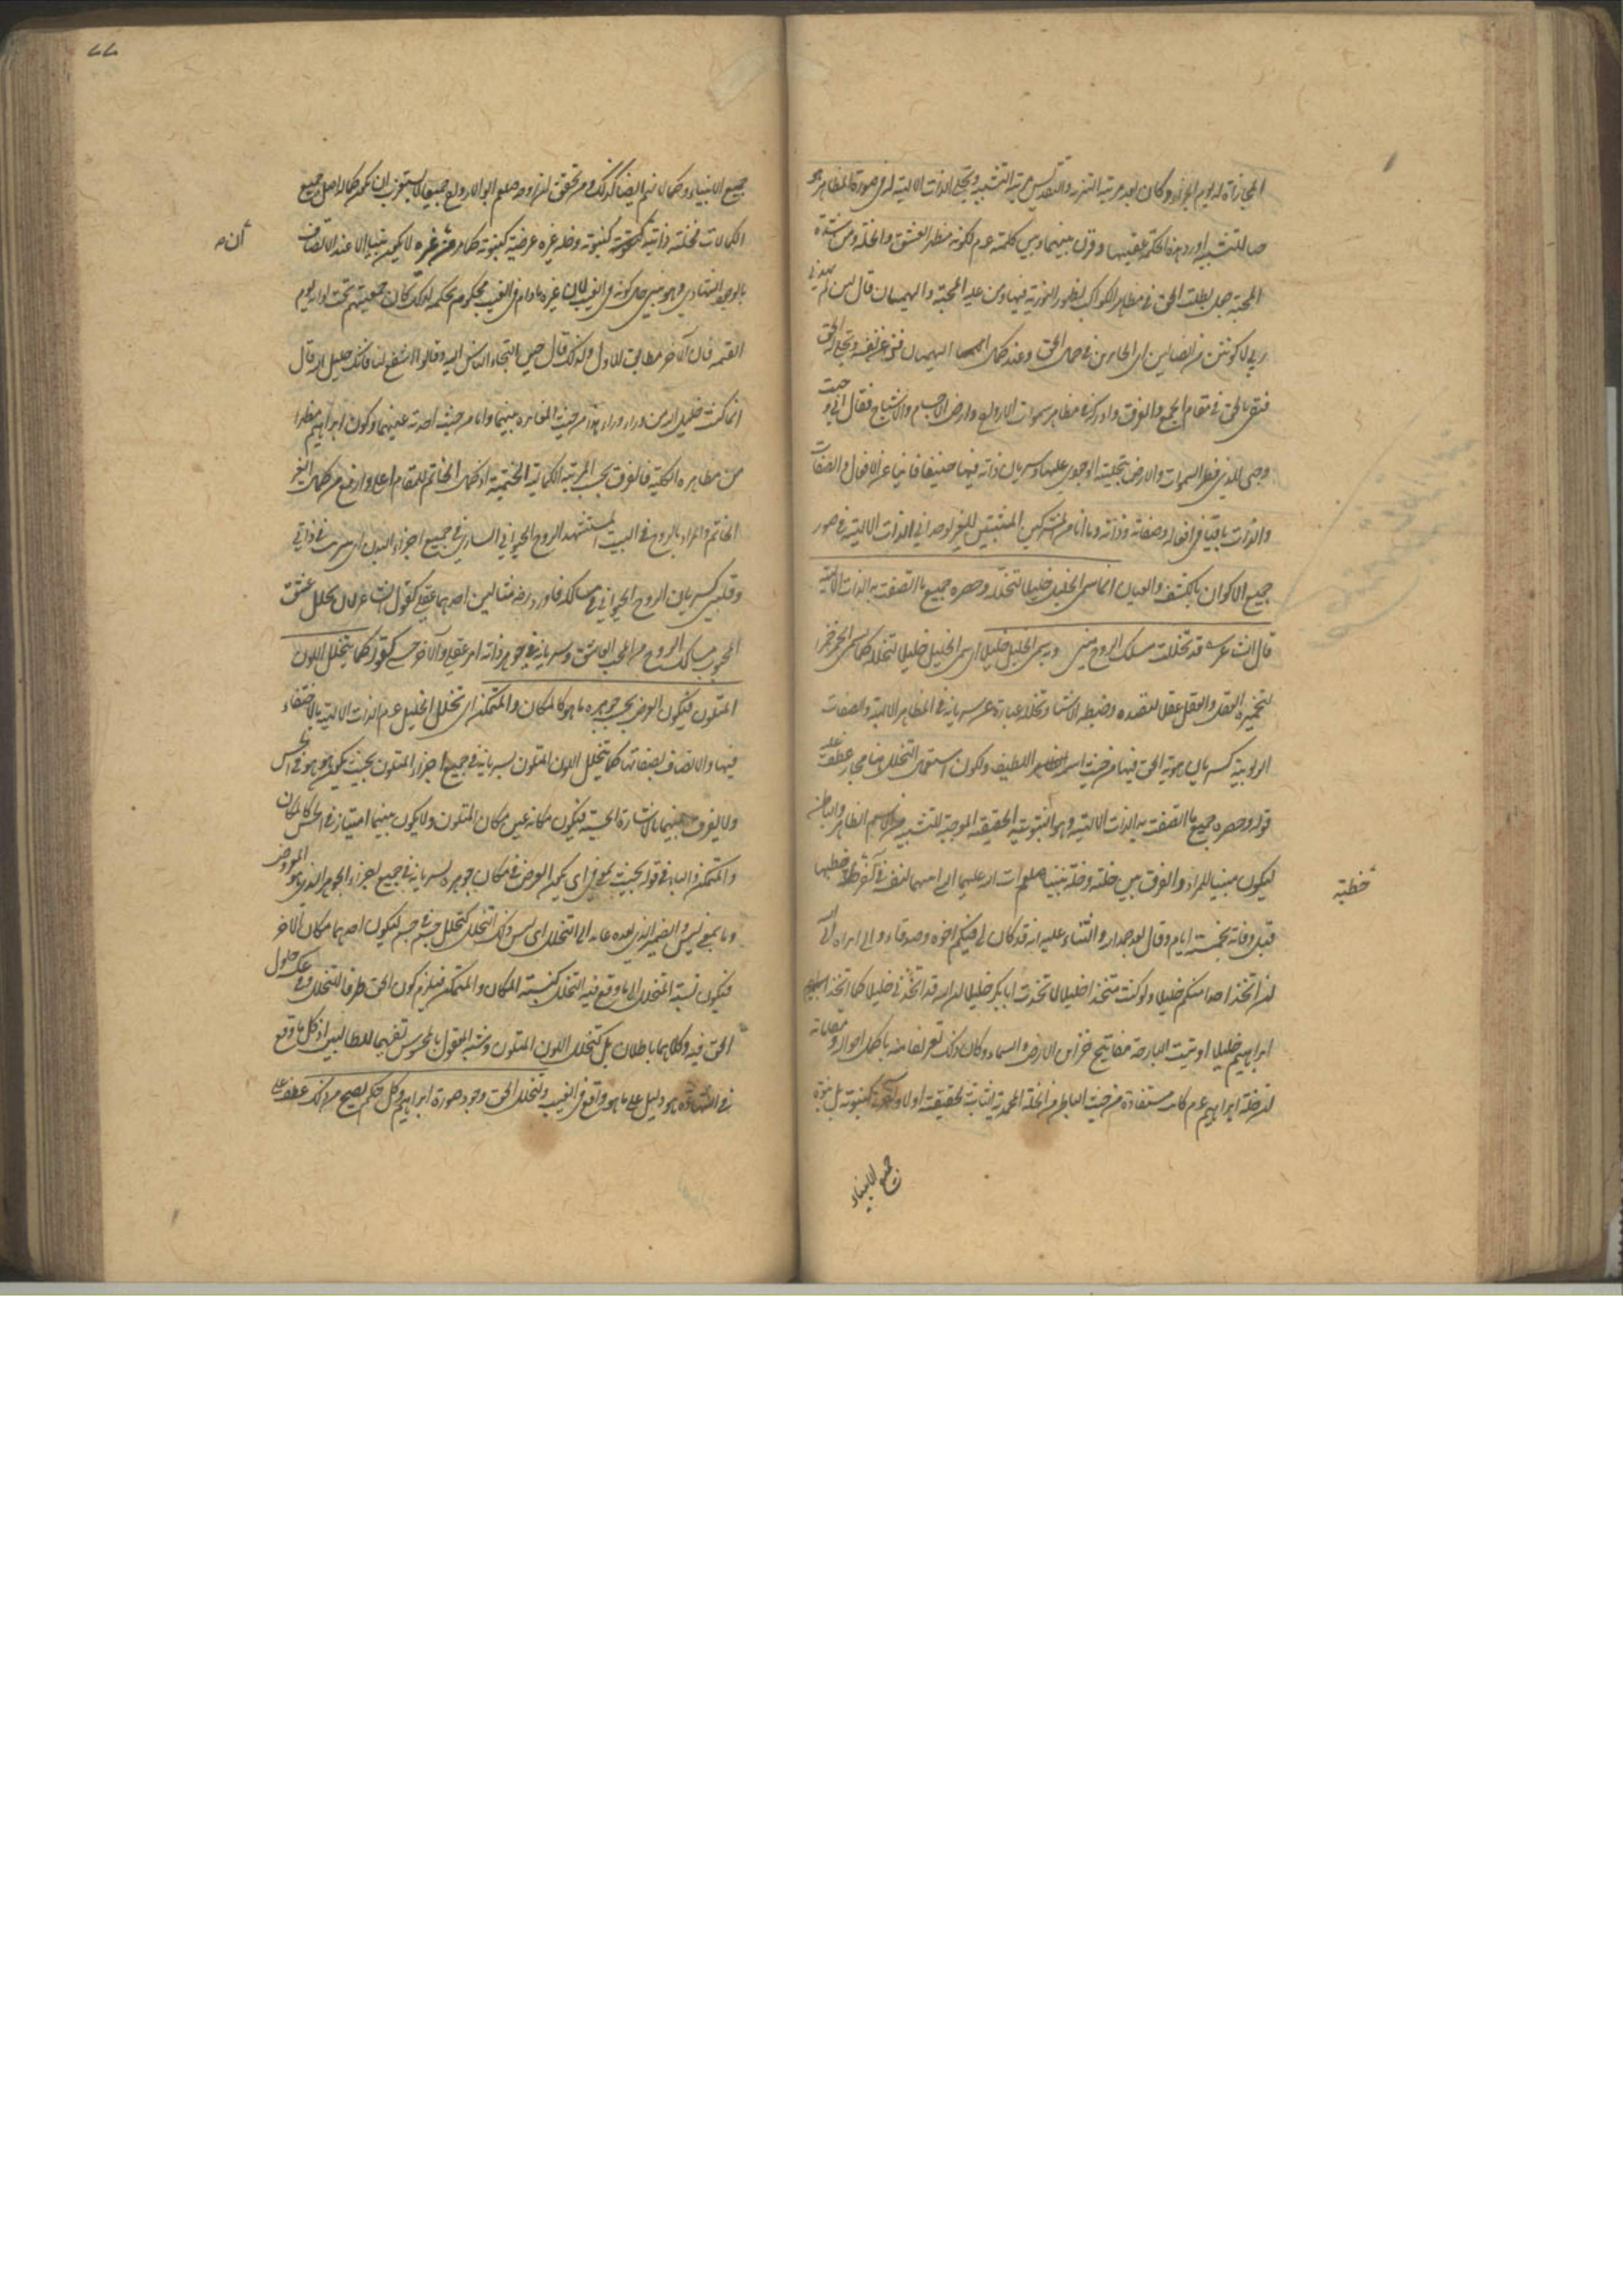 المجازاة له يوم الجزاء وكان بعد مرتبة التنزيه والتقديس مرتبة التشبيه وتجلي الذات الالهية له في صورة المظاهر هو
صا للتشبيه اورد هذه الحكمة عقيبها وقرن بينهما وبين كلمته عم لكونه مظهر العشق والخلة ومن شدة
المحبة جعل يطلب الحق في مظاهر الكواكب لظهور النورية فيها ومن غلبة المحبة والهيمان قال لئن لم يهدني
ربي لاكونن من الضالين اي الحايرين في جمال الحق وعند كمال الهيمان فنى عن نفسه وتجلى له الحق
فبقي بالحق في مقام الجمع والفرق وادركه في مظاهر سموات الارواح وارض الاجسام والاشباح فقال اني وجهت
وجهي للذي فطر السموات والارض بتجليه الوجودي عليها وسريان ذاته فيها حنيفا فانيا عن الافعال والصفات
والذات باقيا في افعاله وصفاته وذاته وما انا من المشركين المثبتين للغير لوجداني الذات الالهية في صور
جميع الاكوان بالكشف والعيان انما سمي الخليل خليلا لتخلله وحصره جميع ما اتصفت به الذات الالهية
قال الشاعر قد تخللت مسلك الروح مني وبه سمي الخليل خليلا اي سمي الخليل خليلا لتخلله كما يسمى الخمر خمرا
لتخميره العقل والعقل عقلا لتقيده وضبطه الاشياء وتخلله عبارة عن سريانه في المظاهر الالهية والصفات
الربوبية كسريان هوية الحق فيها من حيث اسمه اللطيف ولكون استعمال التخلل هنا مجازا عطف عليه
قوله وحصره جميع ما اتصفت به الذات الالهية وهو الثبوتية الحقيقية الموجبة للتشبيه من الاسم الظاهر والباطن
ليكون مبينا للمراد والفرق بين خلته وخلة نبينا صلوات الله عليهما
قبل وفاته بخمسة ايام وقال بعد حمد الله والثناء عليه انه قد كان لي فيكم اخوة وصدقاء واني ابراء الى الله
ان اتخذ احدا منكم خليلا ولو كنت متخذا خليلا لاتخذت ابا بكر خليلا ان الله قد اتخذني خليلا كما اتخذ
ابراهيم خليلا اوتيت البارحة مفاتيح خزاين الارض والسماء وكان ذلك تعريفا منه باكمل احواله ومقاماته
ان خلة ابراهيم عم كانت مستفادة من حيث الباطن من الخلة المحمدية الثابتة لحقيقته اولا وآخرا كنبوته بل نبوة
جميع الانبياء
خطبة
٧٧
جميع الانبياء وكمالاتهم ايضا كذلك ومن تحقق ان روحه صلعم ابو الارواح جميعا لا يستغرب ان يكون كماله اصل جميع
الكمالات فخلته ذاتية كنبوته وخلة غيره عرضية كنبوته لا يكون نبيا الا عند الاتصاف
بالوجود الشهادي وهو نبي حال كونه في الغيب لان غيره مادام في الغيب محكوم بحكمه لذلك كان جميعهم تحت لوائه يوم
القيمة فان الآخر مطابق للاول ولذلك قال حين التجاء الناس اليه وقالوا اشفع لنا فانك خليل الله قال
انما كنت خليل الله من وراء وراء هذا من حيث المغايرة بينهما واما من حيث احدية عينهما وكون ابراهيم مظهرا
من مظاهره الكلية فالفرق بحسب المرتبة الكمالية الختمية اذ كمال الخاتم للمقام اعلى وارفع من كمال الغير
الخاتم والمراد بالروح في البيت المستشهد الروح الحيواني الساري في جميع اجزاء البدن اي سريت في ذاتي
وقلبي كسريان الروح الحيواني في مسالكه فاورد رضه مثالين احدهما عقلي كقول الشاعر لان تخلل عشق
المحبوب مسالك الروح من المحب العاشق وسريانه في جوهر ذاته امر عقلي والآخر حسي كقوله كما يتخلل اللون
المتلون فيكون العرض بحيث جوهره ما هو كالمكان والمتمكن اي تخلل الخليل عم الذات الالهية بالاختفاء
فيها والاتصاف بصفاتها كما يتخلل اللون المتلون بسريانه في جميع اجزاء المتلون بحيث يكون هو هو في الحس
ولا يفرق بينهما بالاشارة الحسية فيكون مكانه عين مكان المتلون ولا يكون بينهما امتياز في الحس كالمكان
والمتمكن والباء في قوله بحيث بمعنى في اي يكون العرض في مكان جوهره بسريانه في جميع اجزاء الجوهر الذي هو المعروض
وما بمعنى ليس والضمير الذي بعده عائد الى التخلل اي ليس ذلك التخلل كتخلل جسم في جسم ليكون احدهما مكان الآخر
فيكون نسبة المتخلل الى ما وقع فيه التخلل كنسبة المكان والمتمكن فيلزم كون الحق ظرفا للتخلل وفي عكسه حلول
الحق فيه وكلاهما باطلان بل كتخلل اللون المتلون وشبه المعقول بالمحسوس تفهيما للطالبين اذ كل ما وقع
في الشهادة هو دليل على ما هو واقع في الغيب ولتخلل الحق وجود صورة ابراهيم وكل حكم يصح من ذلك عطف على